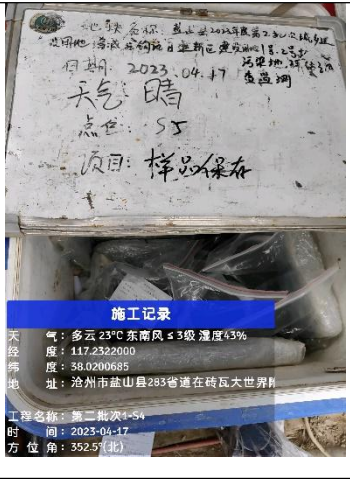 地块名称：盐山县2023年度第2
日期：2023.04.17
天气：晴
点位：S5
项目：样品保存
施工记录
天 气：多云 23℃ 东南风 ≤ 3级 湿度43%
经 度：117.2322000
纬 度：38.0200685
地 址：沧州市盐山县283省道在砖瓦大世界附
工程名称：第二批次1-S4
时 间：2023-04-17
方 位 角：352.5°(北)